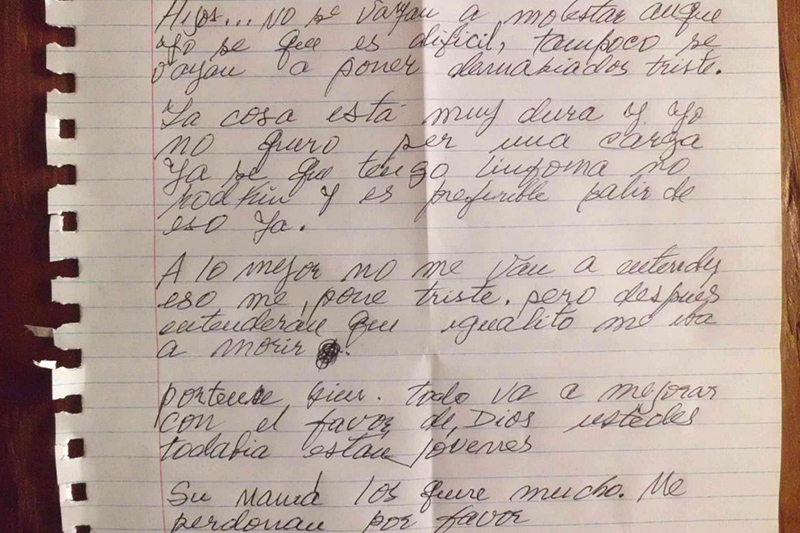 Hijos... NO se vayan a molestar auque
yo se que es dificil, tampoco se
vayan a poner demabiados triste.
La cosa está muy dura y yo
no quero ser una carga
Ya se que tengo linfoma no
hodkin y es preferible salir de
eso ya.
A lo mejor no me van a entender
eso me, pone triste. pero después
entenderán que igualito me iva
a morir
portense bien. todo va a mejorar
con el favor de, Dios ustedes
todabia están jovenes
Su mamá los quire mucho. Me
perdonan por favor